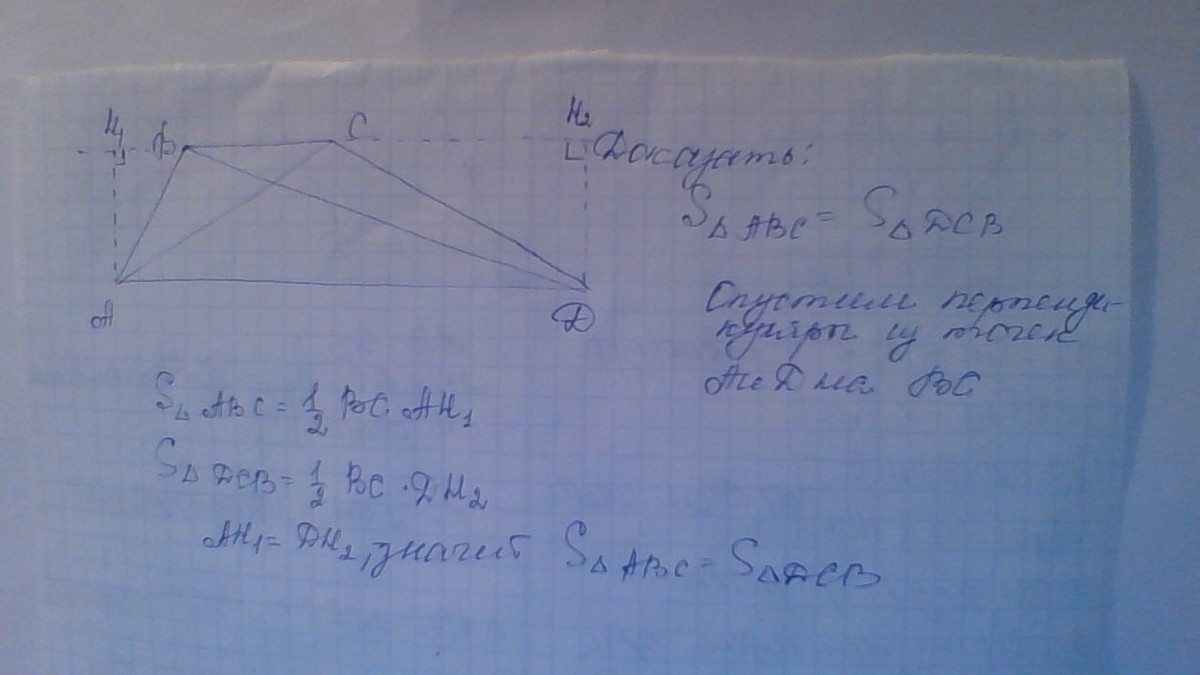 H₁ B C H₂
A D
Доказать:
S△ABC = S△DCB
Спустим перпенди-
куляры из точек
A и D на BC
S△ABC = 1/2 BC · AH₁
S△DCB = 1/2 BC · DH₂
AH₁ = DH₂, значит S△ABC = S△DCB